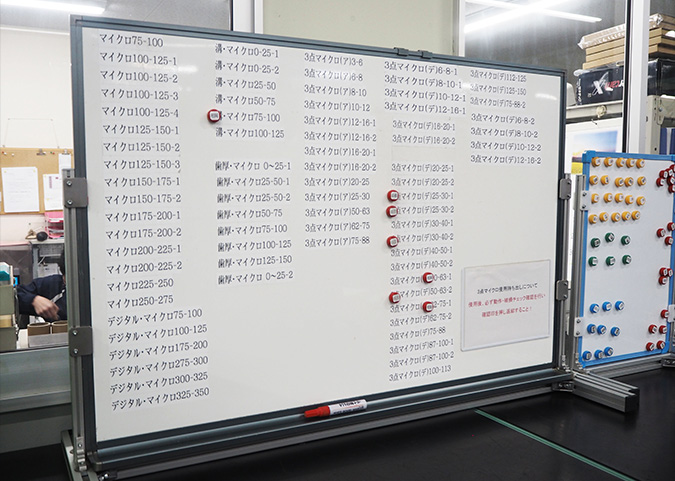 マイクロ75-100
マイクロ100-125-1
マイクロ100-125-2
マイクロ100-125-3
マイクロ100-125-4
マイクロ125-150-1
マイクロ125-150-2
マイクロ125-150-3
マイクロ150-175-1
マイクロ150-175-2
マイクロ175-200-1
マイクロ175-200-2
マイクロ200-225-1
マイクロ200-225-2
マイクロ225-250
マイクロ250-275
デジタル・マイクロ75-100
デジタル・マイクロ100-125
デジタル・マイクロ175-200
デジタル・マイクロ275-300
デジタル・マイクロ300-325
デジタル・マイクロ325-350
溝・マイクロ0-25-1
溝・マイクロ0-25-2
溝・マイクロ25-50
溝・マイクロ50-75
・マイクロ75-100
溝・マイクロ100-125
歯厚・マイクロ 0~25-1
歯厚・マイクロ25-50-1
歯厚・マイクロ25-50-2
歯厚・マイクロ50-75
歯厚・マイクロ75-100
歯厚・マイクロ100-125
歯厚・マイクロ125-150
歯厚・マイクロ 0~25-2
3点マイクロ(ア)3-6
3点マイクロ(ア)6-8
3点マイクロ(ア)8-10
3点マイクロ(ア)10-12
3点マイクロ(ア)12-16-1
3点マイクロ(ア)12-16-2
3点マイクロ(ア)16-20-1
3点マイクロ(ア)16-20-2
3点マイクロ(ア)20-25
3点マイクロ(ア)25-30
3点マイクロ(ア)50-63
3点マイクロ(ア)62-75
3点マイクロ(ア)75-88
3点マイクロ(デ)6-8-1
3点マイクロ(デ)8-10-1
3点マイクロ(デ)10-12-1
3点マイクロ(デ)12-16-1
3点マイクロ(デ)16-20-1
3点マイクロ(デ)16-20-2
3点マイクロ(デ)20-25-1
3点マイクロ(デ)20-25-2
マイクロ(デ)25-30-1
マイクロ(デ)25-30-2
3点マイクロ(デ)30-40-1
マイクロ(デ)30-40-2
3点マイクロ(デ)40-50-1
3点マイクロ(デ)40-50-2
3点マイクロ(デ)50-63-1
3点マイクロ(デ)50-63-2
マイクロ(デ)62-75-1
3点マイクロ(デ)62-75-2
3点マイクロ(デ)75-88
3点マイクロ(デ)87-100-1
3点マイクロ(デ)87-100-2
3点マイクロ(デ)100-113
3点マイクロ(デ)112-125
3点マイクロ(デ)125-150
3点マイクロ(デ)75-88-2
3点マイクロ(デ)6-8-2
3点マイクロ(デ)8-10-2
3点マイクロ(デ)10-12-2
3点マイクロ(デ)12-16-2
3点マイクロの使用持ち出しについて
使用後、必ず動作・破損チェック確認を行い
確認印を押し返却すること!